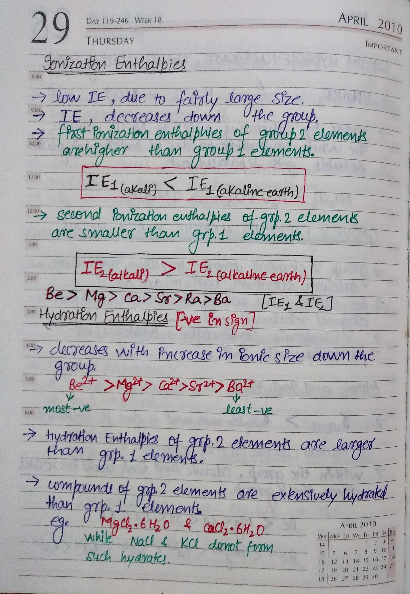 29
DAY 119-246 WEEK 18
APRIL 2010
THURSDAY
IMPORTANT
Ionization Enthalpies
→ low IE, due to fairly large size.
→ IE, decreases down the group.
→ first ionization enthalpies of group 2 elements
are higher than group 1 elements.
IE1 (alkali) < IE1 (alkaline earth)
→ second ionization enthalpies of grp. 2 elements
are smaller than grp. 1 elements.
IE2 (alkali) > IE2 (alkaline earth)
Be > Mg > Ca > Sr > Ra > Ba [IE1 & IE2]
Hydration Enthalpies [-ve in sign]
→ decreases with increase in ionic size down the
group.
Be2+ > Mg2+ > Ca2+ > Sr2+ > Ba2+
most -ve least -ve
→ Hydration Enthalpies of grp. 2 elements are larger
than grp. 1 elements.
→ compounds of grp. 2 elements are extensively hydrated
than grp. 1 elements
eg. MgCl2.6H2O & CaCl2.6H2O
while NaCl & KCl donot form
such hydrates.
APRIL 2010